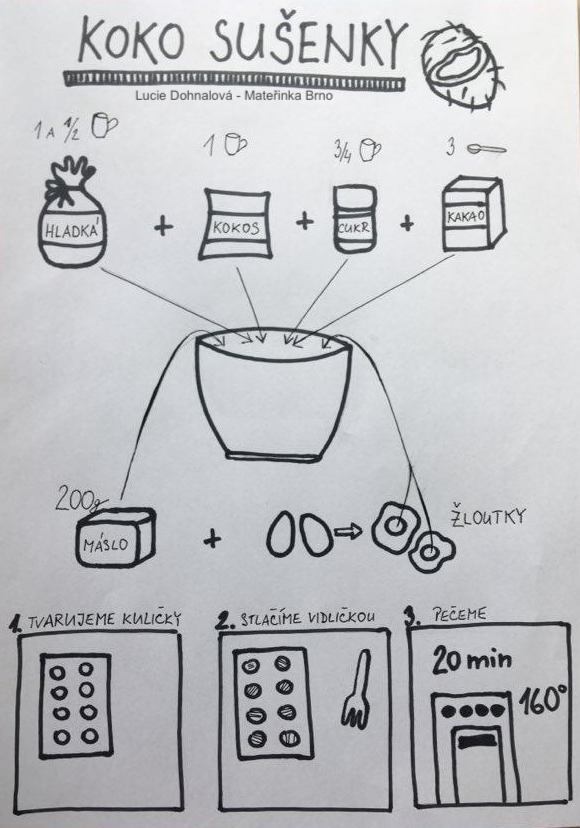 KOKO SUŠENKY
Lucie Dohnalová - Mateřinka Brno
1 A 1/2
1
3/4
3
HLADKÁ
+
KOKOS
+
CUKR
+
KAKAO
200g
MÁSLO
+
ŽLOUTKY
1. TVARUJEME KULIČKY
2. STLAČÍME VIDLIČKOU
3. PEČEME
20 min
160°